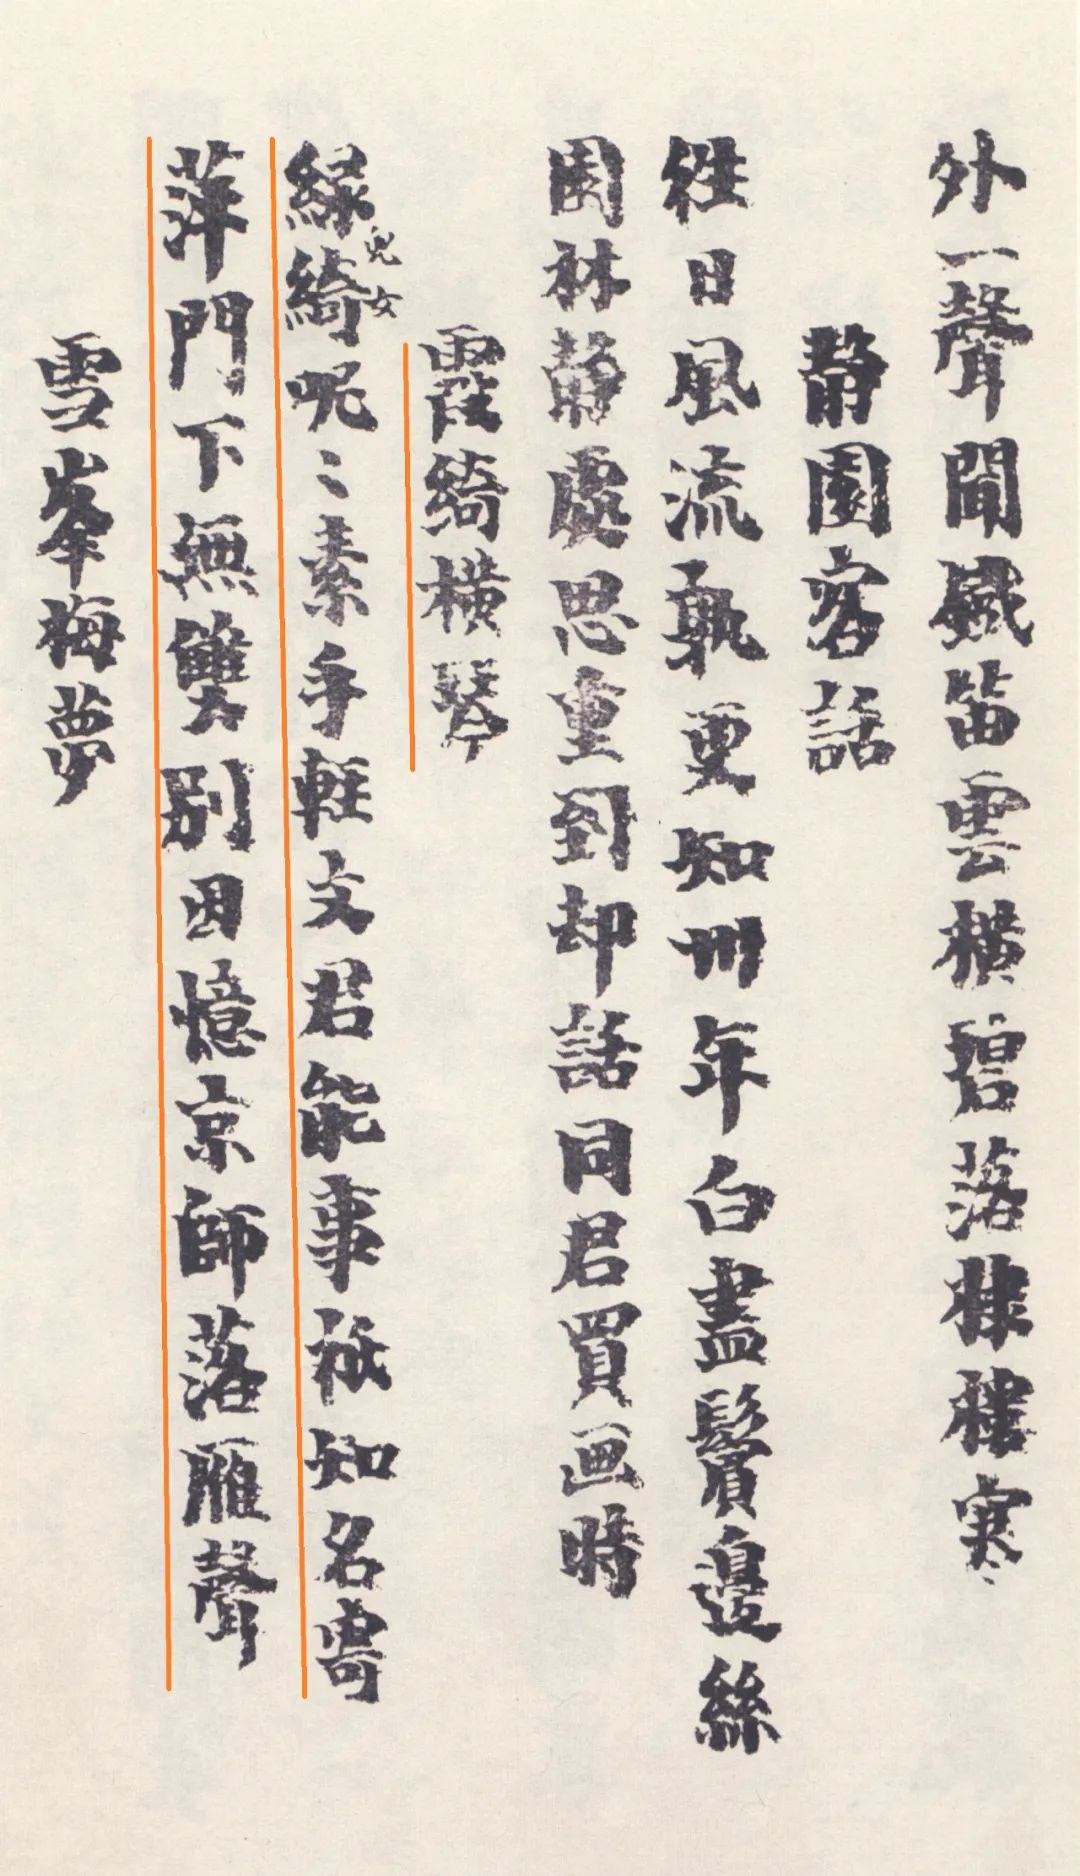 外一聲聞鐵笛雲橫碧落棣樓寒
静園客話
往日風流孰更知卅年白盡鬢邊絲
園林静處思重到却話同君買画時
霞綺橫琴
兒女
綠綺呢〻素手輕文君能事祇知名寄
萍門下無雙別因憶京師落雁聲
雪峯梅夢